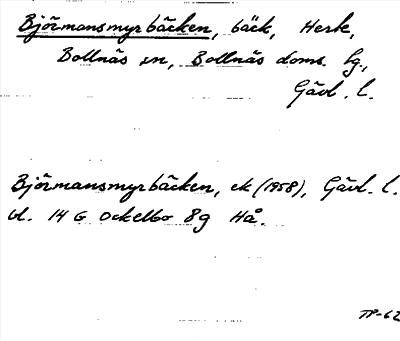 Björmansmyrbäcken, bäck, Herk,
Bollnäs sn, Bollnäs doms. lg.,
Gävl. l.
Björmansmyrbäcken, ek (1958), Gävl. l.
bl. 14 G Ockelbo 8g Hå.
TP-62